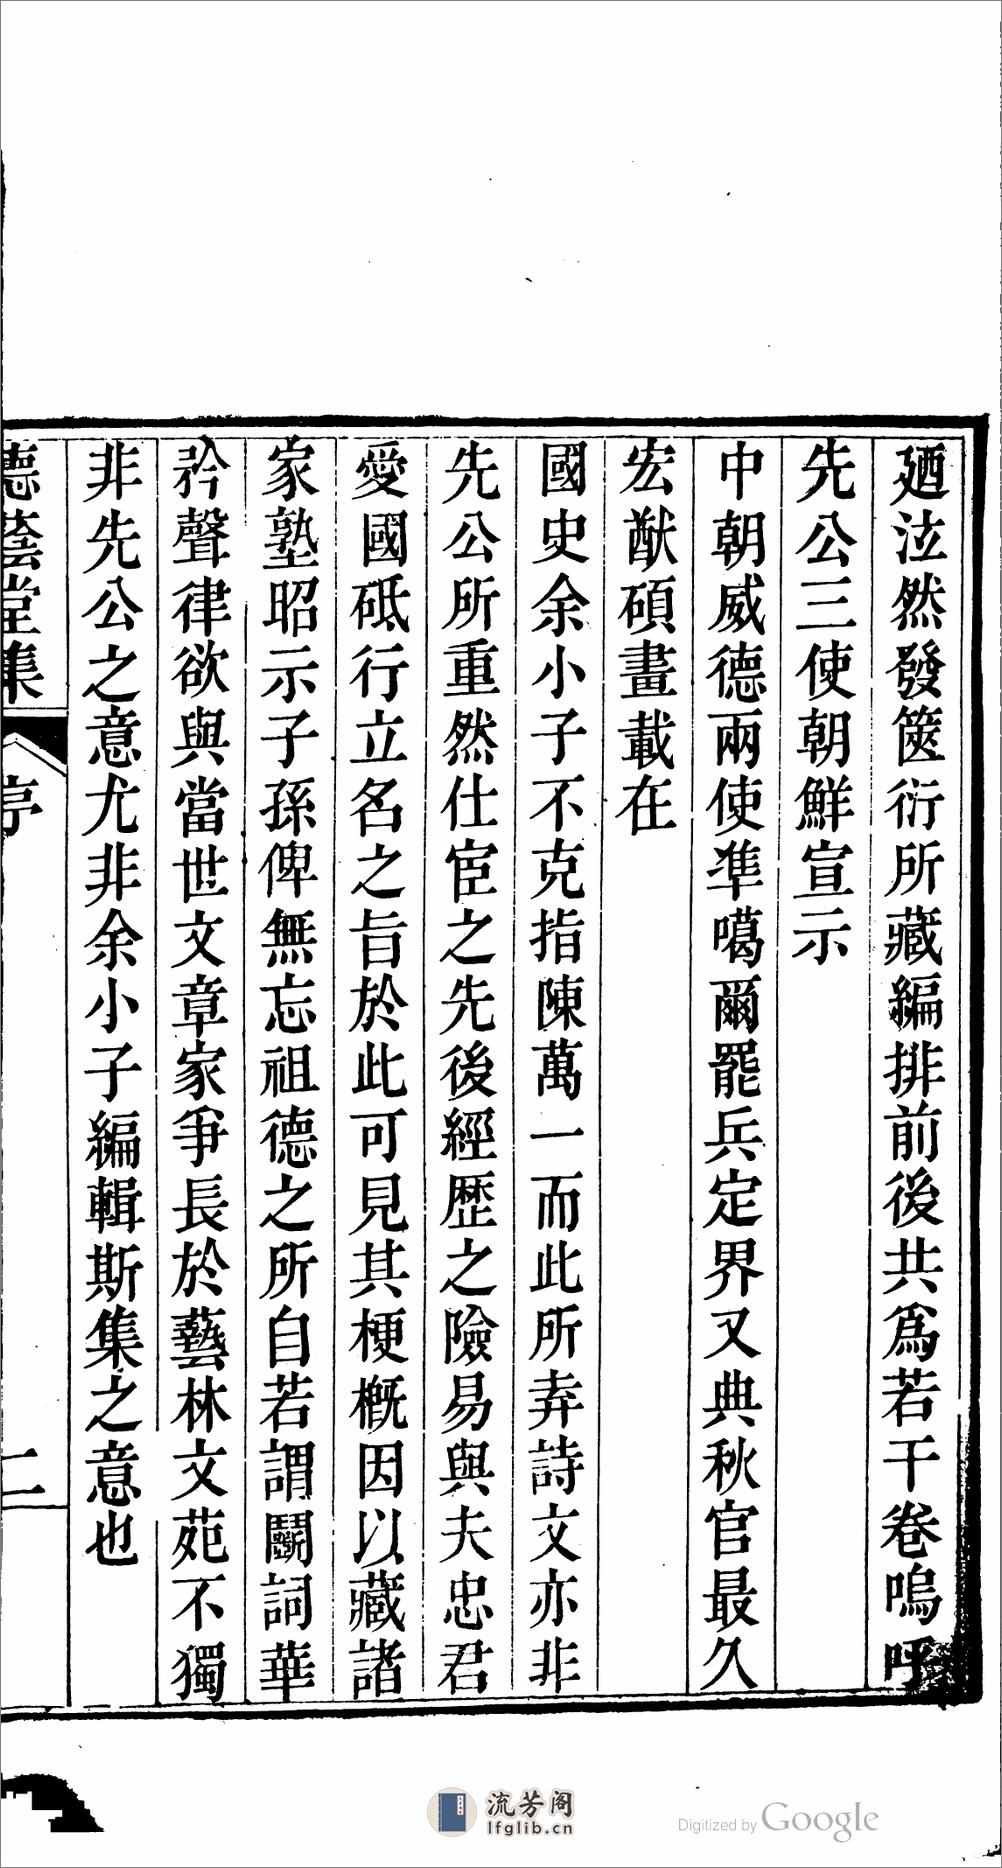 廼泫然發篋衍所藏編排前後共爲若干卷嗚呼
先公三使朝鮮宣示
中朝威德兩使準噶爾罷兵定界又典秋官最久
宏猷碩畫載在
國史余小子不克指陳萬一而此所弆詩文亦非
先公所重然仕宦之先後經歷之險易與夫忠君
愛國砥行立名之旨於此可見其梗概因以藏諸
家塾昭示子孫俾無忘祖德之所自若謂鬭詞華
矜聲律欲與當世文章家爭長於藝林文苑不獨
非先公之意尤非余小子編輯斯集之意也
德蔭堂集
序
二
流芳阁
lfglib.cn
Digitized by Google